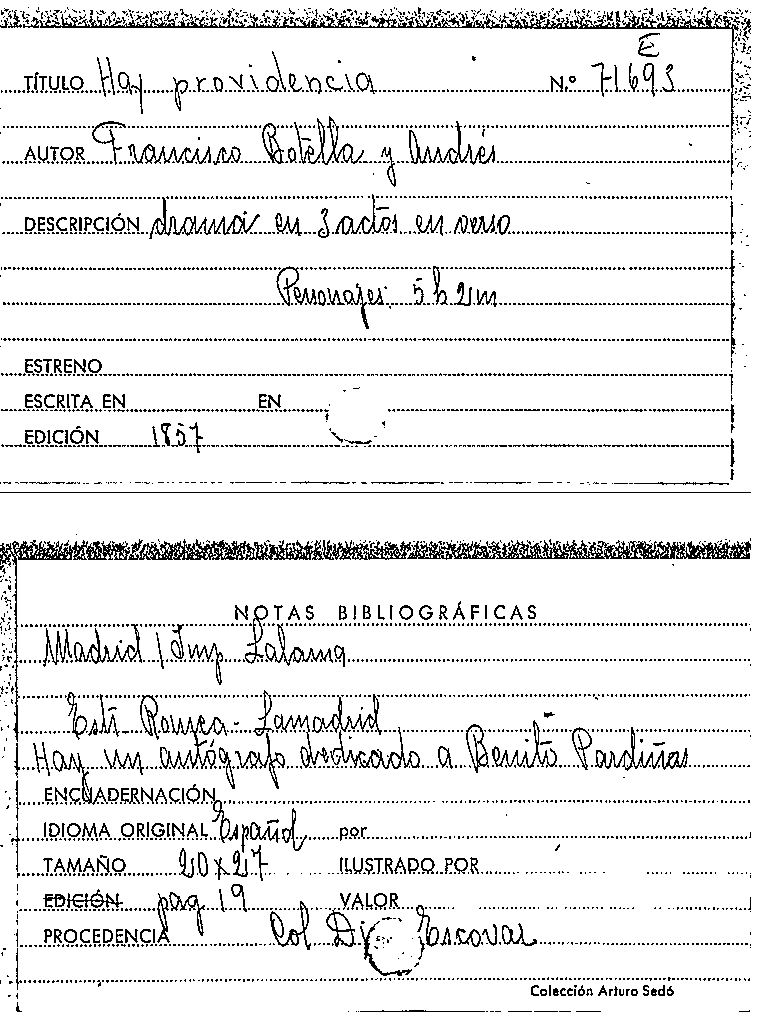 E
TÍTULO Hay providencia N.º 71693
AUTOR Francisco Botella y Andrés
DESCRIPCIÓN drama en 3 actos en verso
Personajes: 5 h 2 m
ESTRENO
ESCRITA EN EN
EDICIÓN 1857
NOTAS BIBLIOGRÁFICAS
Madrid / Imp Lalama
Estr Lamadrid
Hay un autógrafo dedicado a Benito Pardiñas
ENCUADERNACIÓN
IDIOMA ORIGINAL Español por
TAMAÑO 20 x 27 ILUSTRADO POR
EDICIÓN pag 19 VALOR
PROCEDENCIA Col Escovar
Colección Arturo Sedó